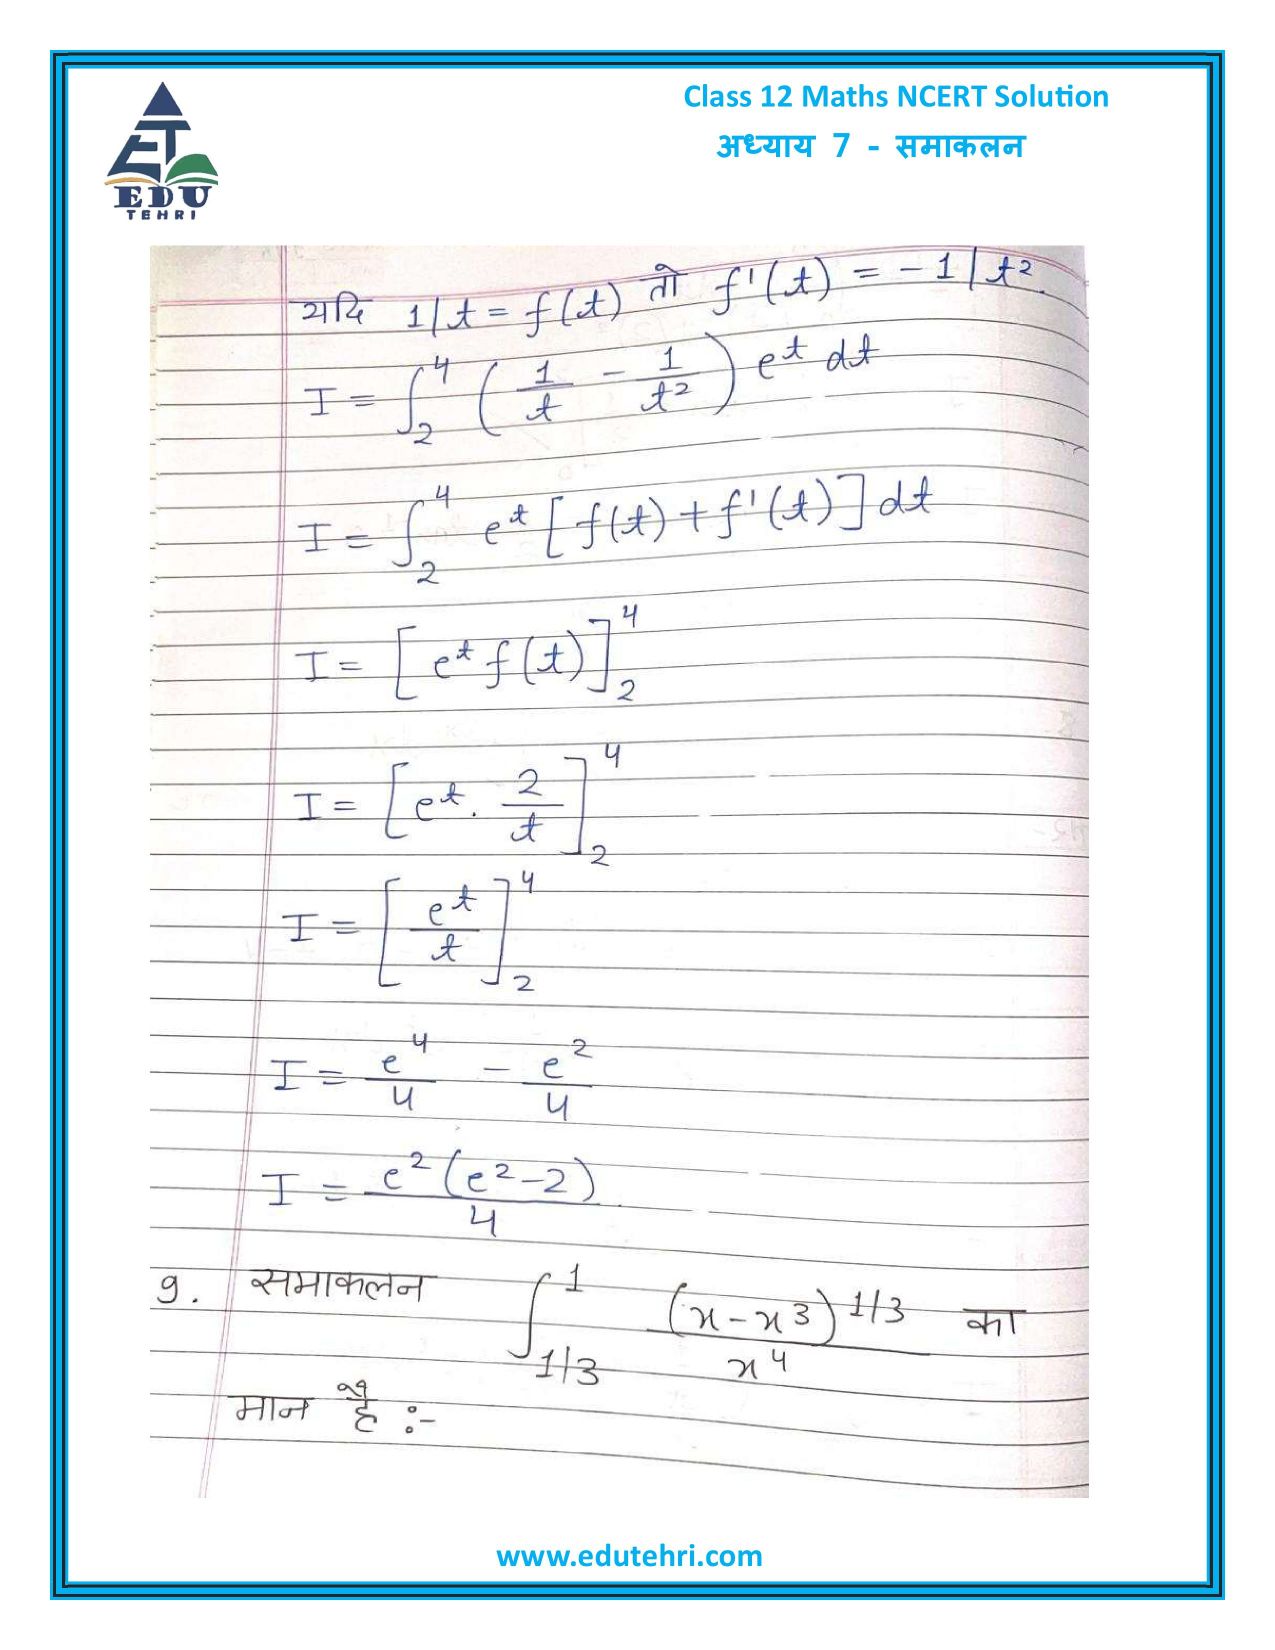 Class 12 Maths NCERT Solution
अध्याय 7 - समाकलन
EDU
TEHRI
यदि 1/t = f(t) तो f'(t) = -1/t².
I = ∫₂⁴ (1/t - 1/t²) eᵗ dt
I = ∫₂⁴ eᵗ [f(t) + f'(t)] dt
I = [eᵗ f(t)]₂⁴
I = [eᵗ. 2/t]₂⁴
I = [eᵗ/t]₂⁴
I = e⁴/4 - e²/4
I = e²(e²-2)/4
9. समाकलन ∫₁/₃¹ (x-x³)^1/3 / x⁴ का
मान है :-
www.edutehri.com